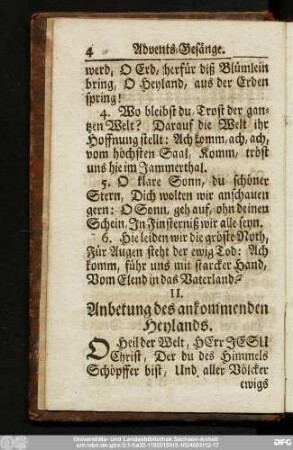 4 Advents-Gesänge.
werd, O Erd, herfür diß Blümlein
bring, O Heyland, aus der Erden
spring!
4. Wo bleibst du, Trost der gan-
tzen Welt? Darauf die Welt ihr
Hoffnung stellt: Ach komm, ach, ach,
vom höchsten Saal, Komm, tröst
uns hie im Jammerthal.
5. O klare Sonn, du schöner
Stern, Dich wolten wir anschauen
gern: O Sonn, geh auf, ohn deinen
Schein In Finsterniß wir alle seyn.
6. Hie leiden wir die gröste Noth,
Für Augen steht der ewig Tod: Ach
komm, führ uns mit starcker Hand,
Vom Elend in das Vaterland.
II.
Anbetung des ankommenden
Heylands.
O Heil der Welt, HErr JESU
Christ, Der du des Himmels
Schöpffer bist, Und aller Völcker
ewigs
Universitäts- und Landesbibliothek Sachsen-Anhalt